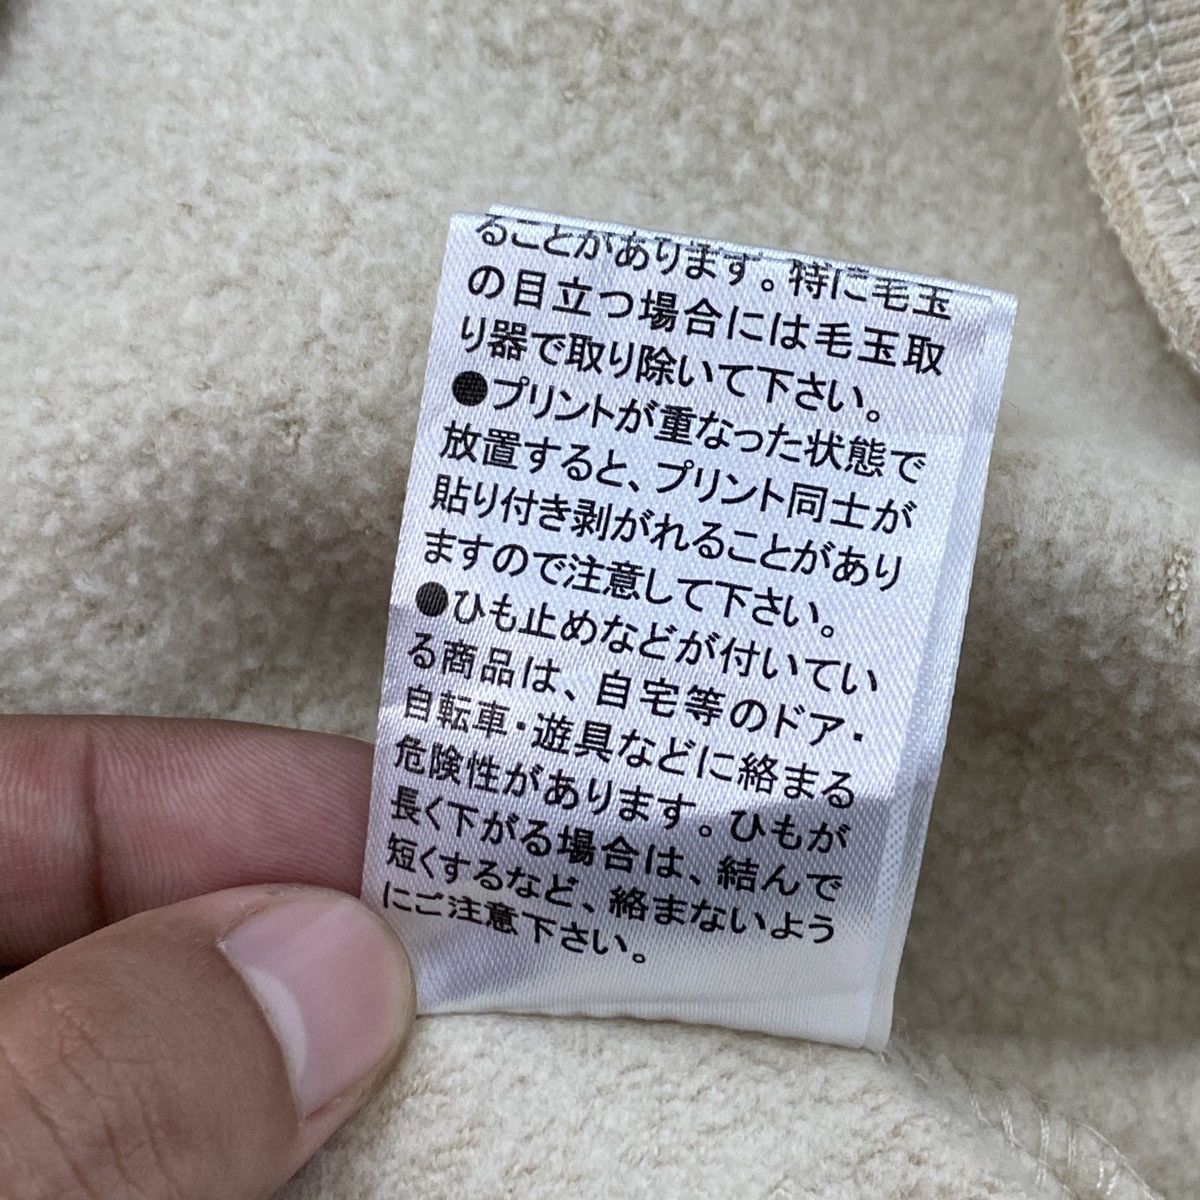 ることがあります。特に毛玉
の目立つ場合には毛玉取
り器で取り除いて下さい。
●プリントが重なった状態で
放置すると、プリント同士が
貼り付き剥がれることがあり
ますので注意して下さい。
●ひも止めなどが付いてい
る商品は、自宅等のドア・
自転車・遊具などに絡まる
危険性があります。ひもが
長く下がる場合は、結んで
短くするなど、絡まないよう
にご注意下さい。